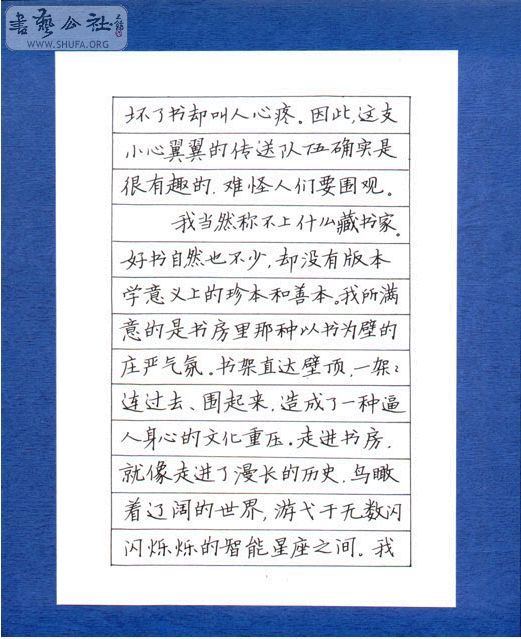 書藝公社
WWW.SHUFA.ORG
坏了书却叫人心疼。因此,这支
小心翼翼的传送队伍确实是
很有趣的,难怪人们要围观。
我当然称不上什么藏书家。
好书自然也不少,却没有版本
学意义上的珍本和善本。我所满
意的是书房里那种以书为壁的
庄严气氛。书架直达壁顶,一架々
连过去、围起来,造成了一种逼
人身心的文化重压。走进书房,
就像走进了漫长的历史,鸟瞰
着辽阔的世界,游弋于无数闪
闪烁烁的智能星座之间。我